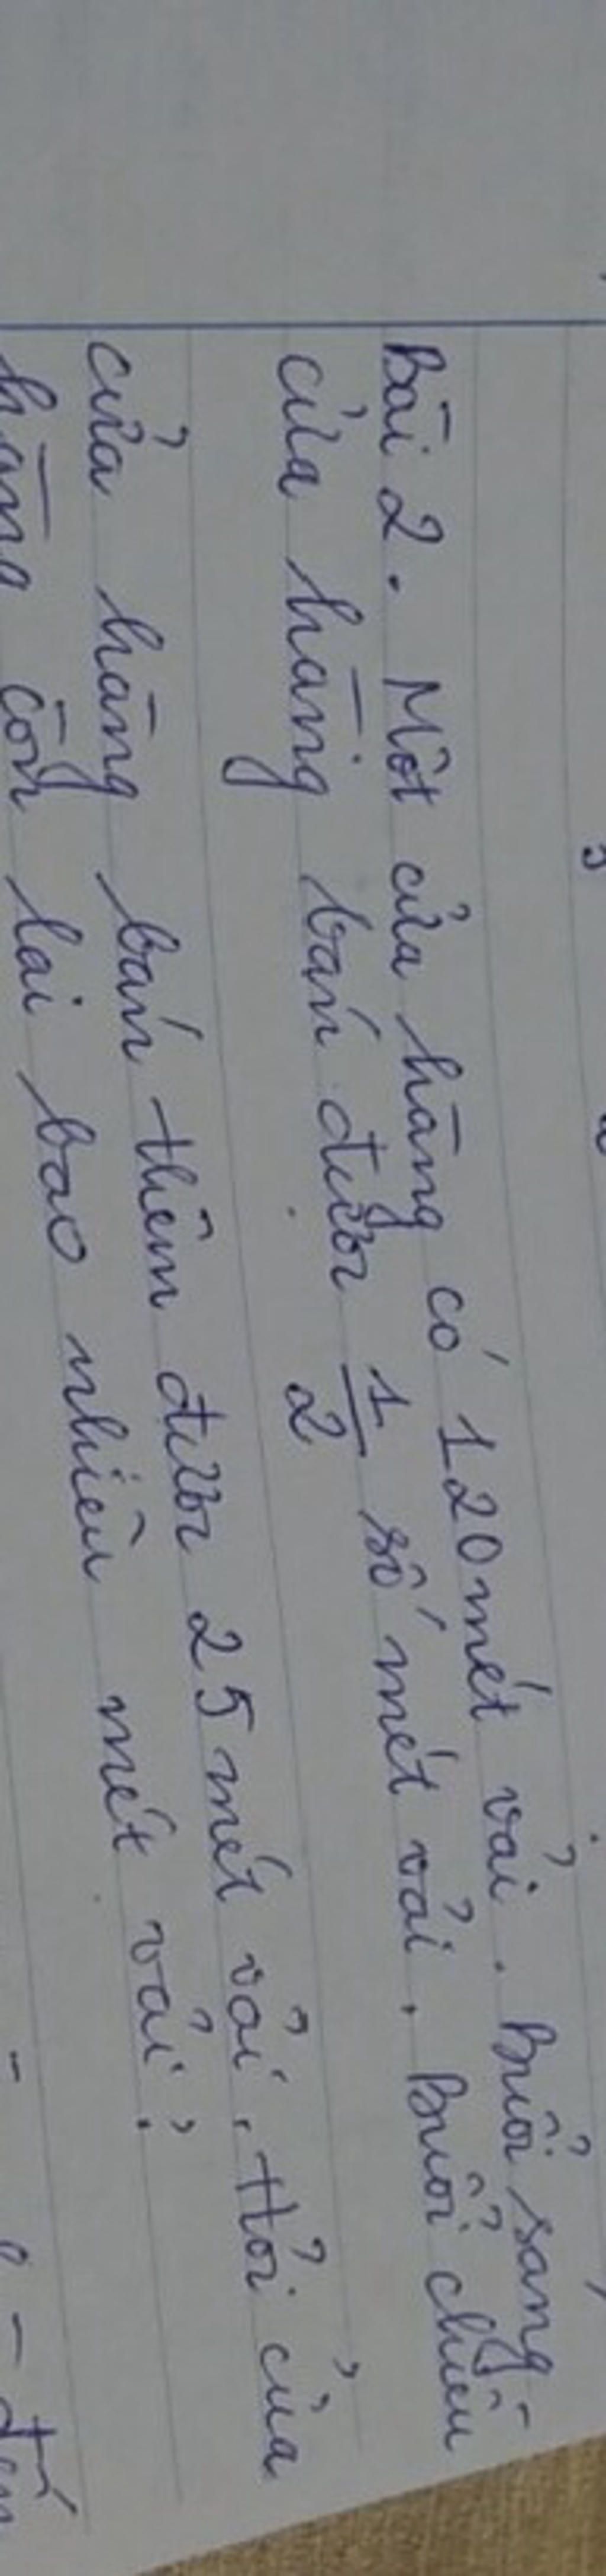 Bài 2. Một cửa hàng có 120 mét vải. Buổi sáng
cửa hàng bán được 1/2 số mét vải. Buổi chiều
cửa hàng bán thêm được 25 mét vải. Hỏi cửa
hàng còn lại bao nhiêu mét vải?